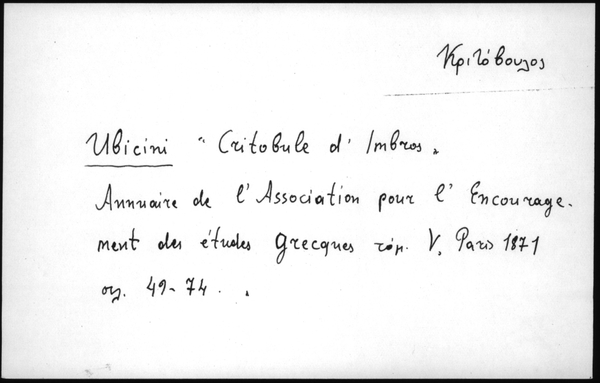 Κριτόβουλος
Ubicini "Critobule d' Imbros„
Annuaire de l'Association pour l' Encourage-
ment des études Grecques τόμ. V, Paris 1871
σελ. 49-74.